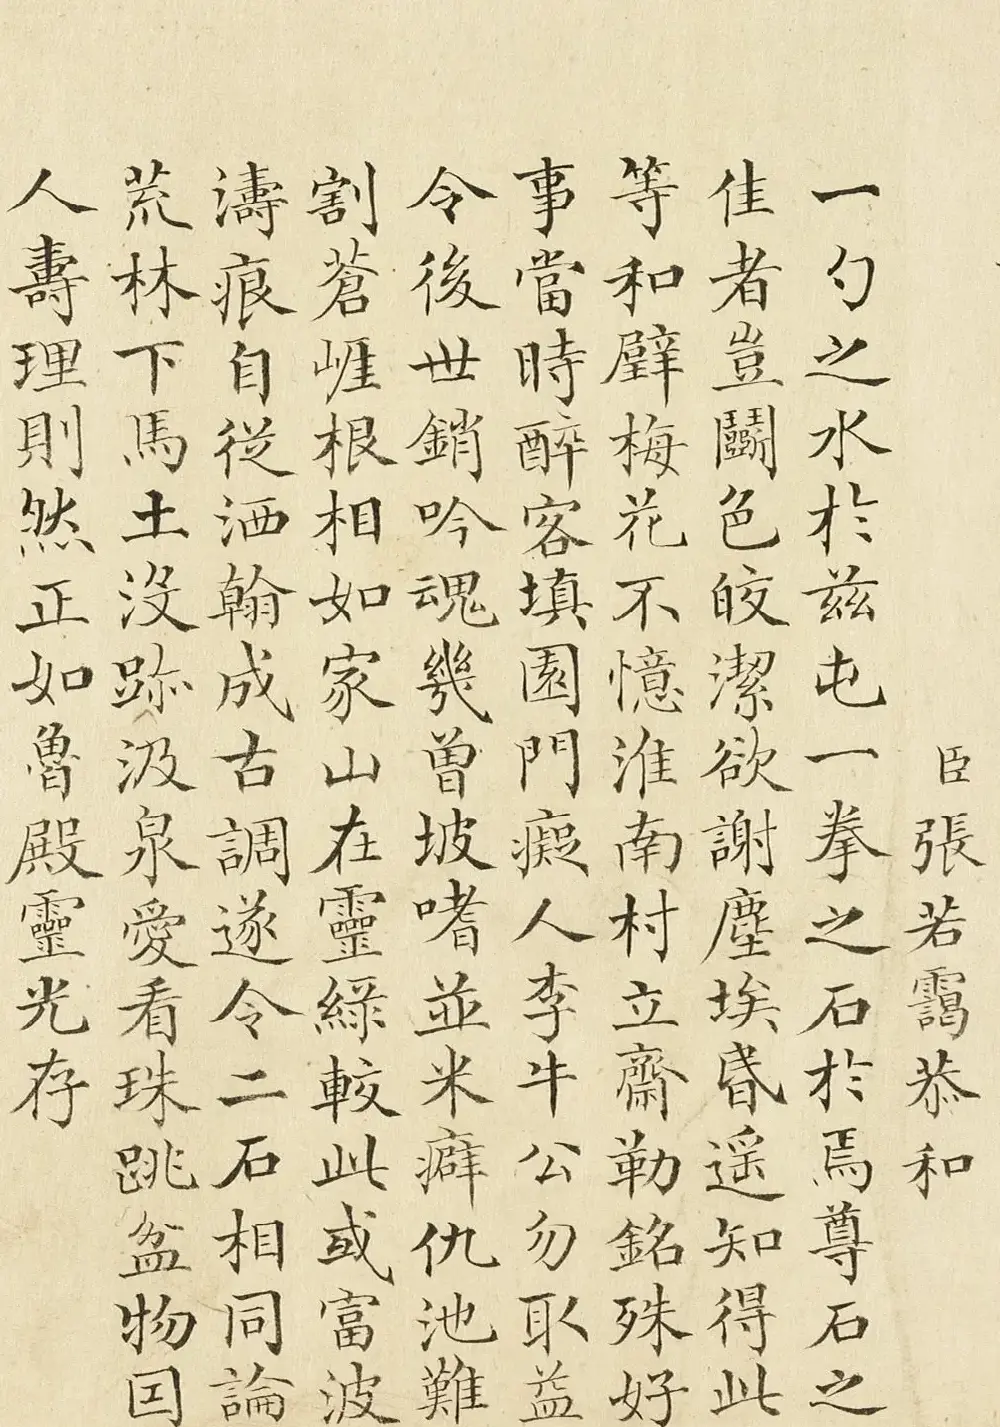 臣張若靄恭和
一勺之水於茲屯一拳之石於焉尊石之
佳者豈鬬色皎潔欲謝塵埃昏遥知得此
等和璧梅花不憶淮南村立齋勒銘殊好
事當時醉客填園門癡人李牛公勿取益
令後世銷吟魂幾曾坡嗜並米癖仇池難
割蒼崕根相如家山在靈綠較此或富波
濤痕自從洒翰成古調遂令二石相同論
荒林下馬土没跡汲泉愛看珠跳盆物囙
人壽理則然正如魯殿靈光存